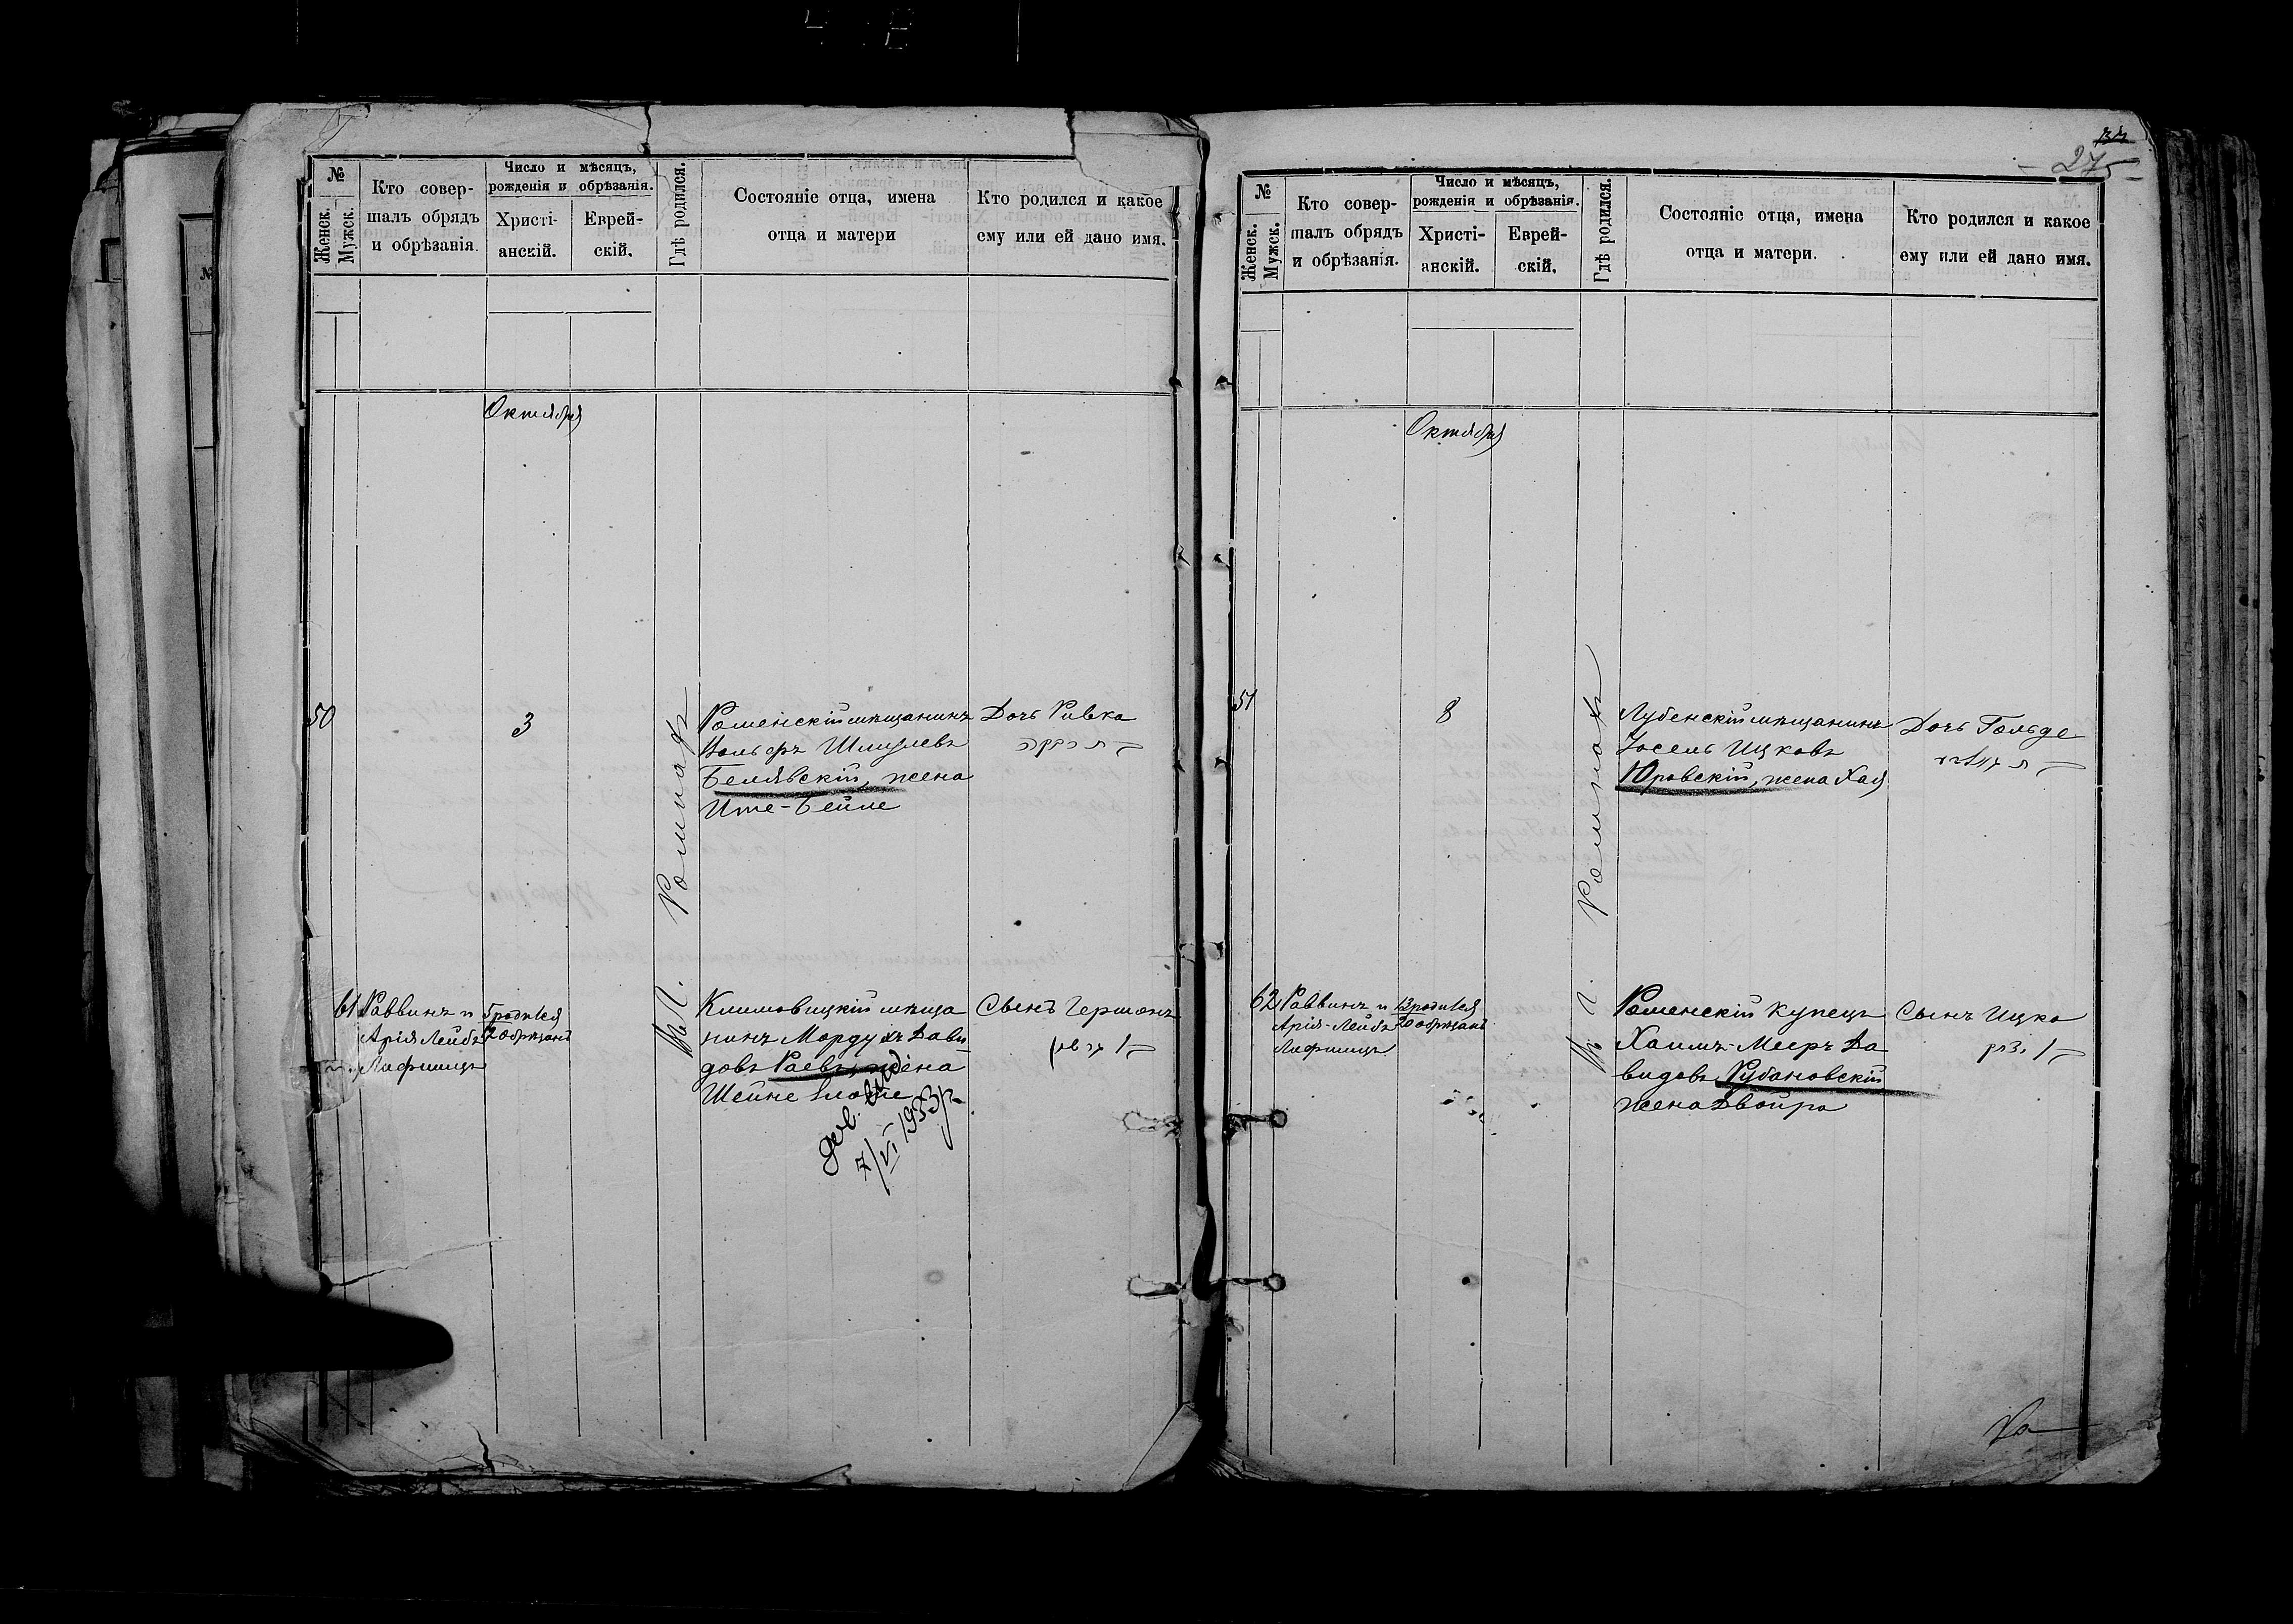 №
Женск.
Мужск.
Кто совер-
шалъ обрядъ
и обрѣзанія.
Число и мѣсяцъ,
рожденія и обрѣзанія.
Христі-
анскій.
Еврей-
скій.
Гдѣ родился.
Состояніе отца, имена
отца и матери
Кто родился и какое
ему или ей дано имя.
Октября
50
3
Въ г. Ромнахъ
Роменскій мѣщанинъ
Вольфъ Шмулевъ
Белявскій, жена
Ите-Бейле
Дочь Ривка
61
Раввинъ и
Арія Лейбъ
Лифшицъ
5 родился
12 обрѣзанъ
Климовицкій мѣща
нинъ Мордухъ Дави
довъ Раевъ, жена
Шейне Злате
Сынъ Гершонъ
7/VI 1933 р.
275
№
Женск.
Мужск.
Кто совер-
шалъ обрядъ
и обрѣзанія.
Число и мѣсяцъ,
рожденія и обрѣзанія.
Христі-
анскій.
Еврей-
скій.
Гдѣ родился.
Состояніе отца, имена
отца и матери.
Кто родился и какое
ему или ей дано имя.
Октября
51
8
Въ г. Ромнахъ
Лубенскій мѣщанинъ
Іосель Ицковъ
Юровскій, жена Хая
Дочь Гольде
62
Раввинъ и
Арія-Лейбъ
Лифшицъ
13 родился
20 обрѣзанъ
Роменскій купецъ
Хаимъ-Мееръ Да
видовъ Рубановскій
жена Двойра
Сынъ Ицко